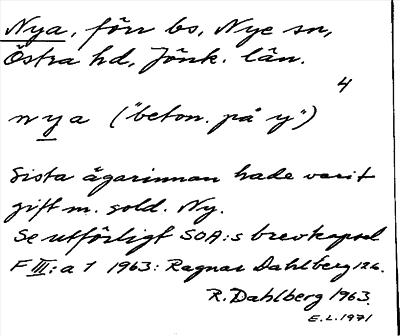 Nya, förr bs, Nye sn,
Östra hd, Jönk. län.
4
nya ("beton. på y")
Sista ägarinnan hade varit
gift m. sold. Ny.
Se utförligt SOA:s brevkapsel
F III:a 1 1963: Ragnar Dahlberg 126.
R. Dahlberg 1963.
E.L. 1971